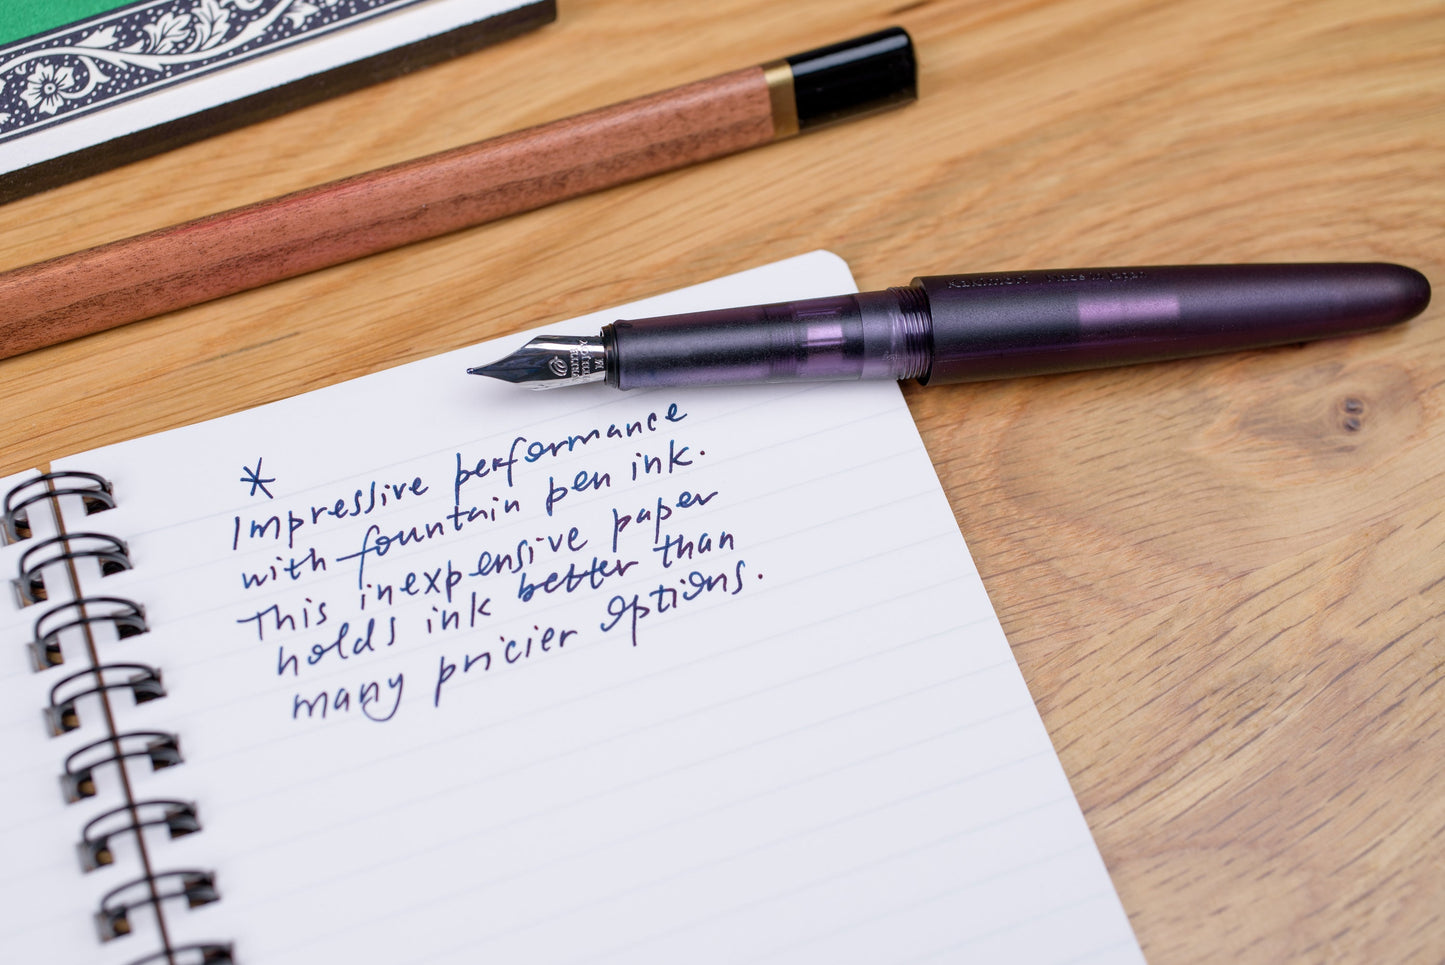 Kakimori Made in Japan
*
Impressive performance
with fountain pen ink.
This inexpensive paper
holds ink better than
many pricier options.